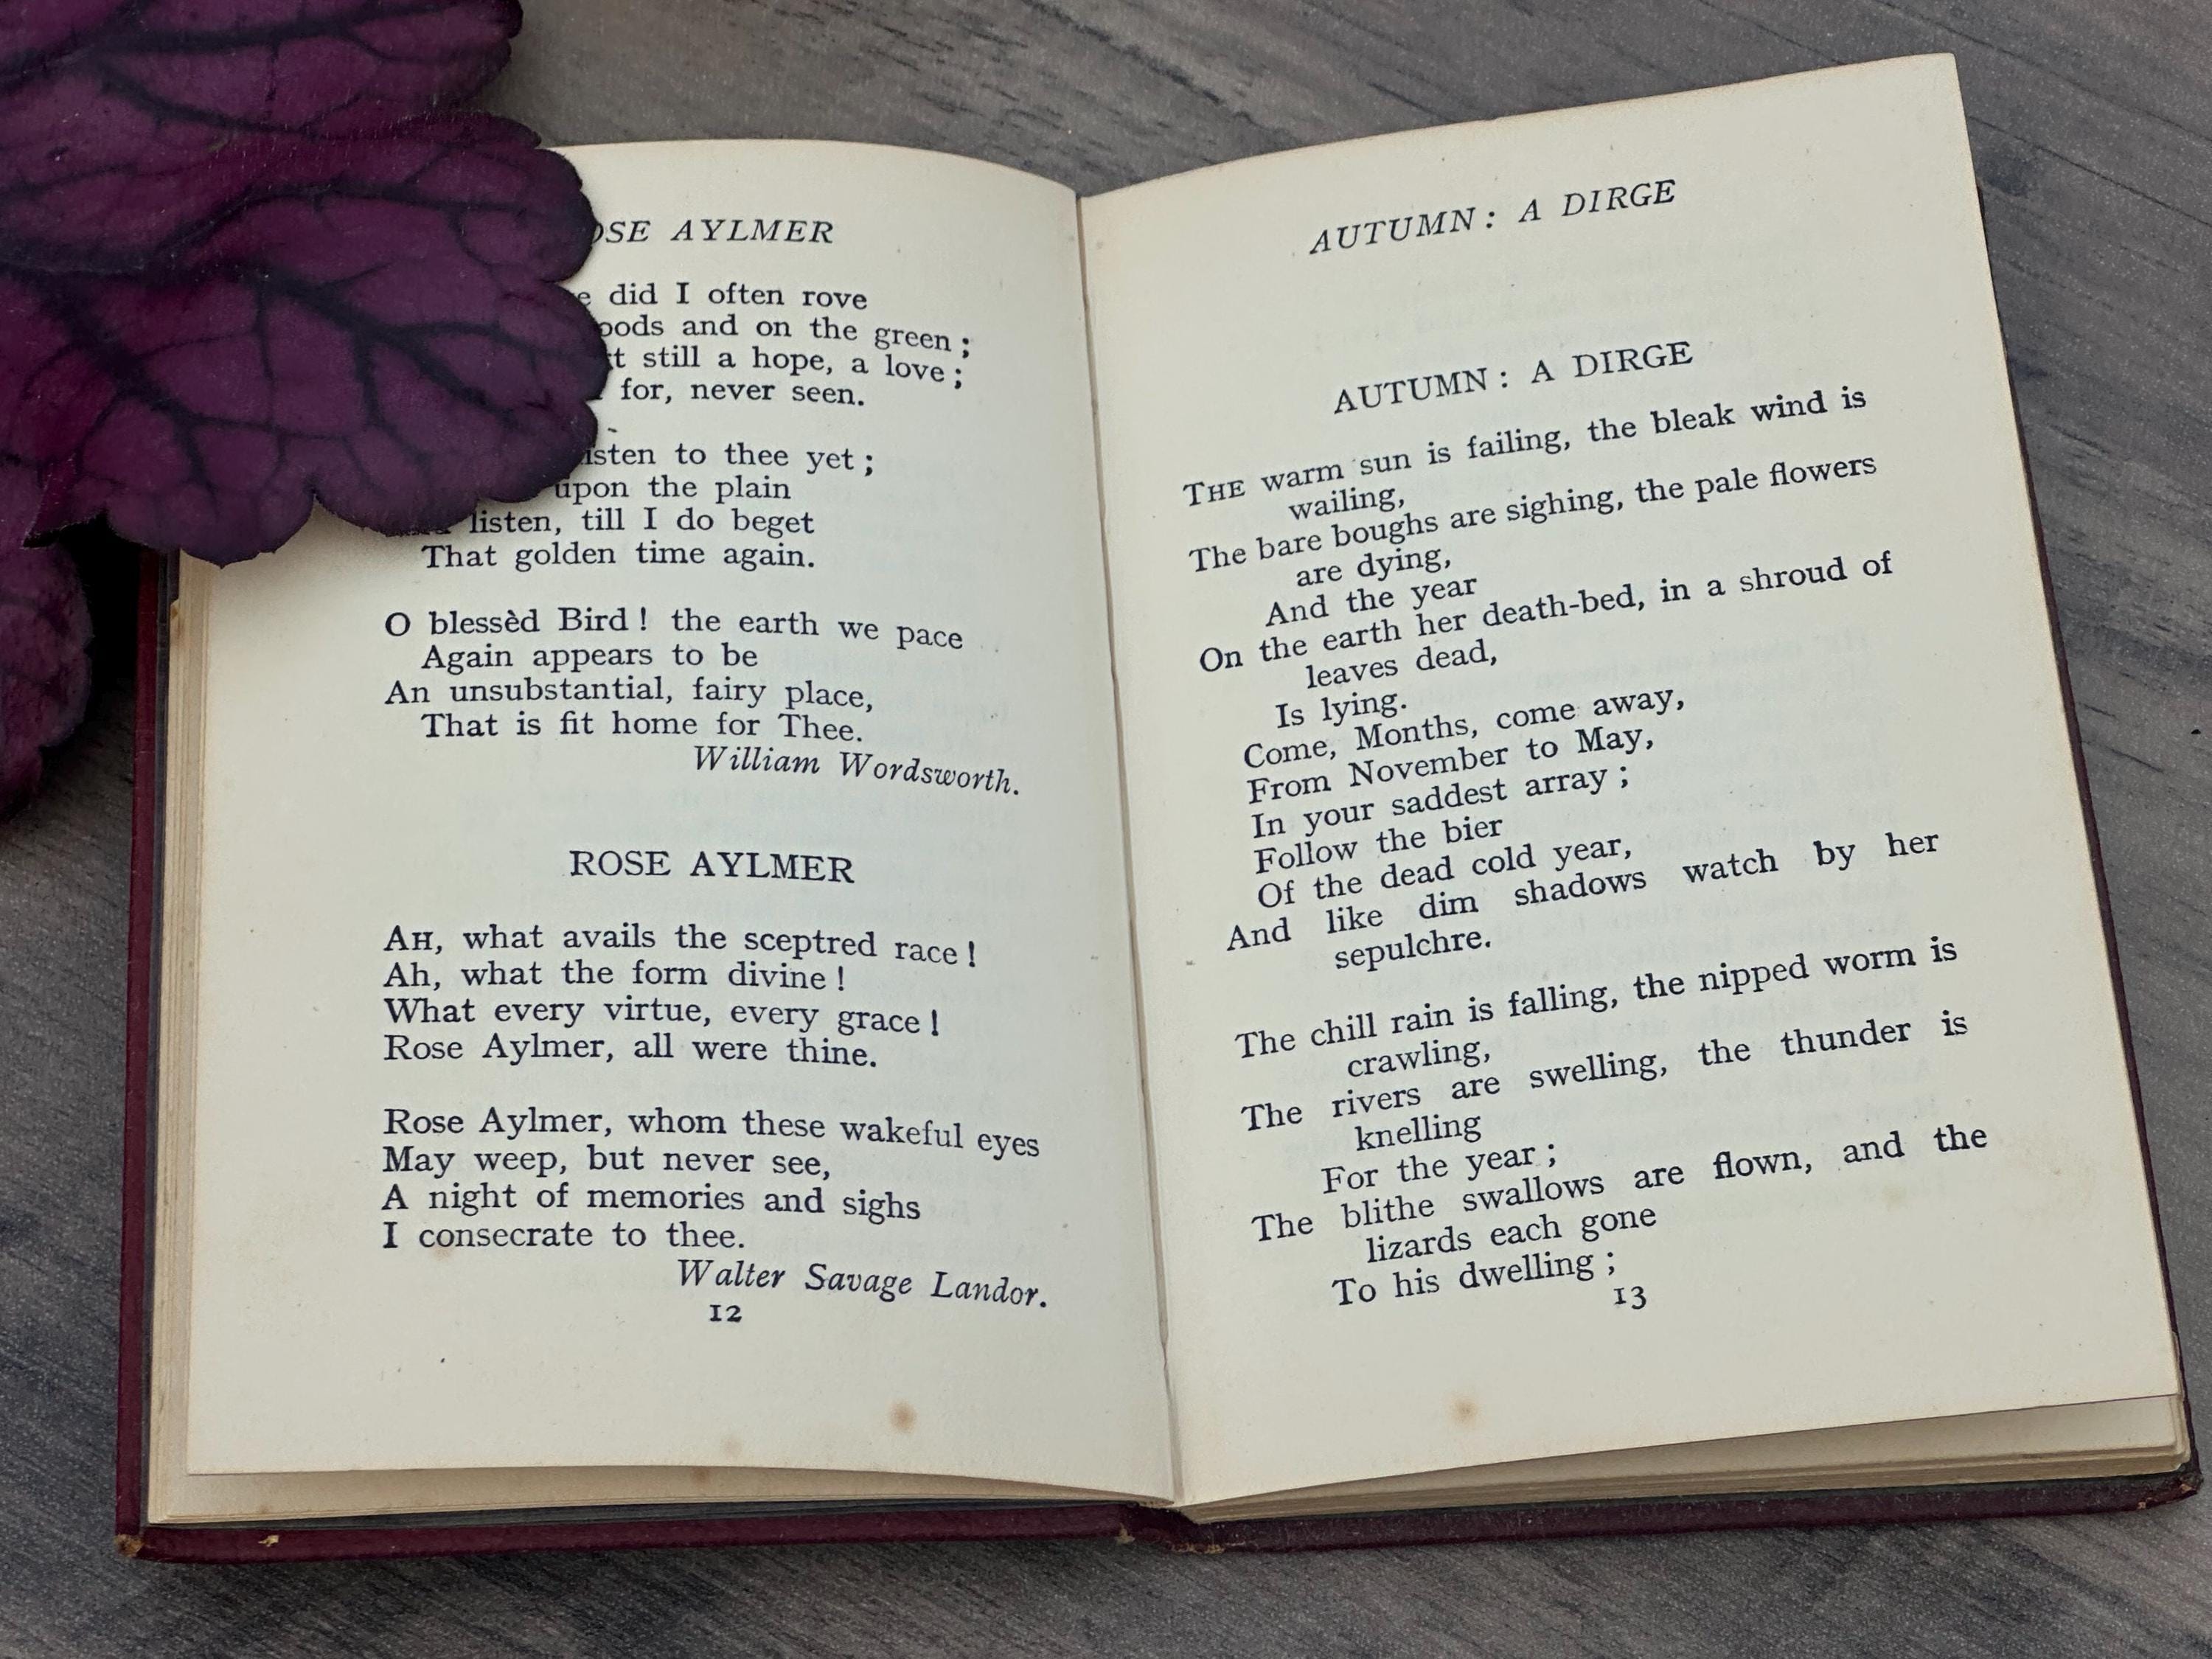 AYLMER
did I often rove
and on the green ;
still a hope, a love ;
for, never seen.
to thee yet ;
upon the plain
listen, till I do beget
That golden time again.
O blessèd Bird ! the earth we pace
Again appears to be
An unsubstantial, fairy place,
That is fit home for Thee.
William Wordsworth.
ROSE AYLMER
AH, what avails the sceptred race !
Ah, what the form divine !
What every virtue, every grace !
Rose Aylmer, all were thine.
Rose Aylmer, whom these wakeful eyes
May weep, but never see,
A night of memories and sighs
I consecrate to thee.
Walter Savage Landor.
12
AUTUMN : A DIRGE
AUTUMN : A DIRGE
THE warm sun is failing, the bleak wind is
wailing,
The bare boughs are sighing, the pale flowers
are dying,
And the year
On the earth her death-bed, in a shroud of
leaves dead,
Is lying.
Come, Months, come away,
From November to May,
In your saddest array ;
Follow the bier
Of the dead cold year,
And like dim shadows watch by her
sepulchre.
The chill rain is falling, the nipped worm is
crawling,
The rivers are swelling, the thunder is
knelling
For the year ;
The blithe swallows are flown, and the
lizards each gone
To his dwelling ;
13